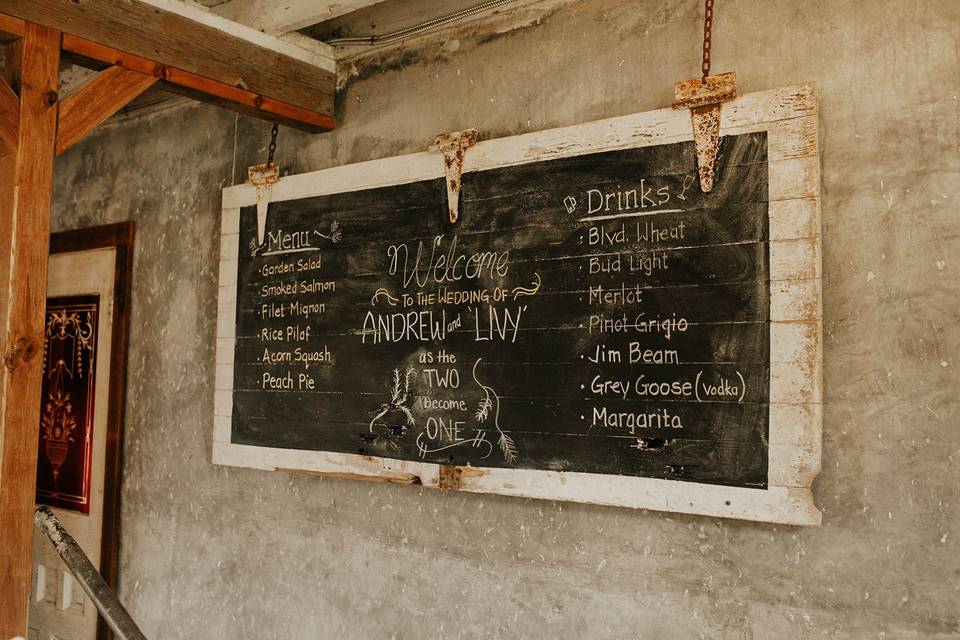 Menu
· Garden Salad
· Smoked Salmon
· Filet Mignon
· Rice Pilaf
· Acorn Squash
· Peach Pie
Welcome
TO THE WEDDING OF
ANDREW and 'LIVY'
as the
TWO
become
ONE
Drinks
· Blvd. Wheat
· Bud Light
· Merlot
· Pinot Grigio
· Jim Beam
· Grey Goose (vodka)
· Margarita